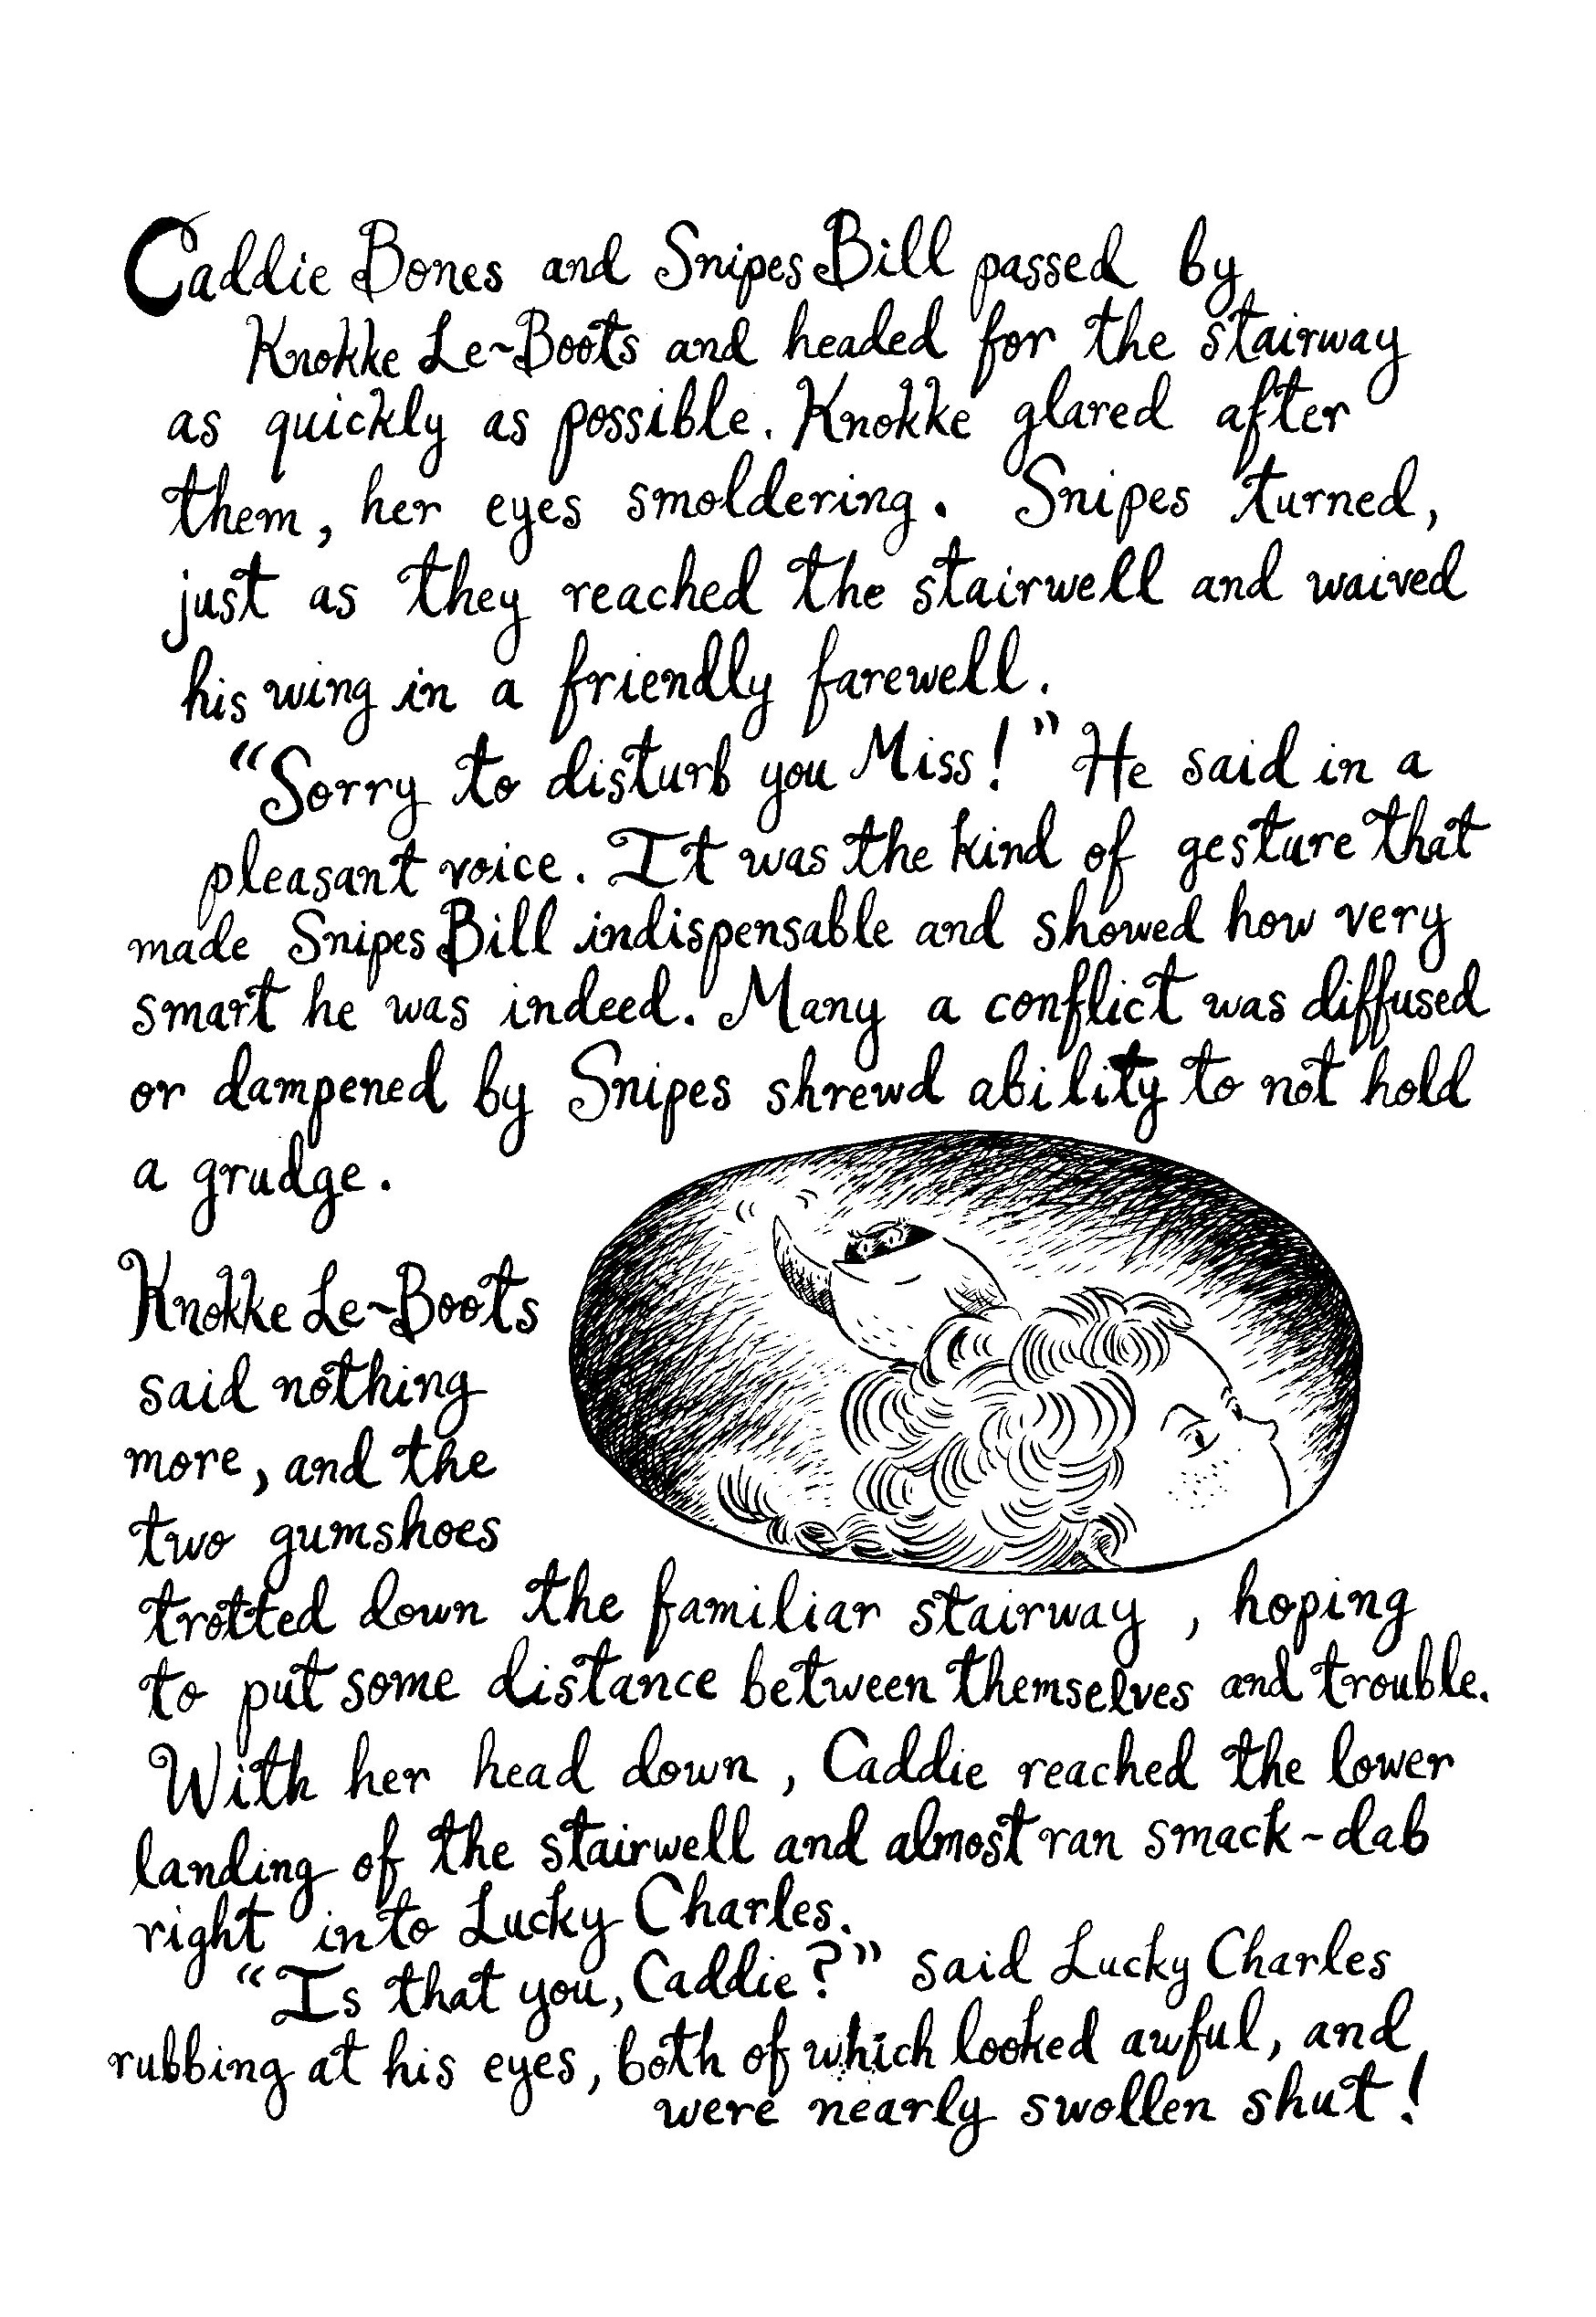 Caddie Bones and Snipes Bill passed by
Knokke Le~Boots and headed for the stairway
as quickly as possible. Knokke glared after
them, her eyes smoldering. Snipes turned,
just as they reached the stairwell and waived
his wing in a friendly farewell.
"Sorry to disturb you Miss!" He said in a
pleasant voice. It was the kind of gesture that
made Snipes Bill indispensable and showed how very
smart he was indeed. Many a conflict was diffused
or dampened by Snipes shrewd ability to not hold
a grudge.
Knokke Le~Boots
said nothing
more, and the
two gumshoes
trotted down the familiar stairway, hoping
to put some distance between themselves and trouble.
With her head down, Caddie reached the lower
landing of the stairwell and almost ran smack-dab
right into Lucky Charles.
"Is that you, Caddie?" said Lucky Charles
rubbing at his eyes, both of which looked awful, and
were nearly swollen shut!